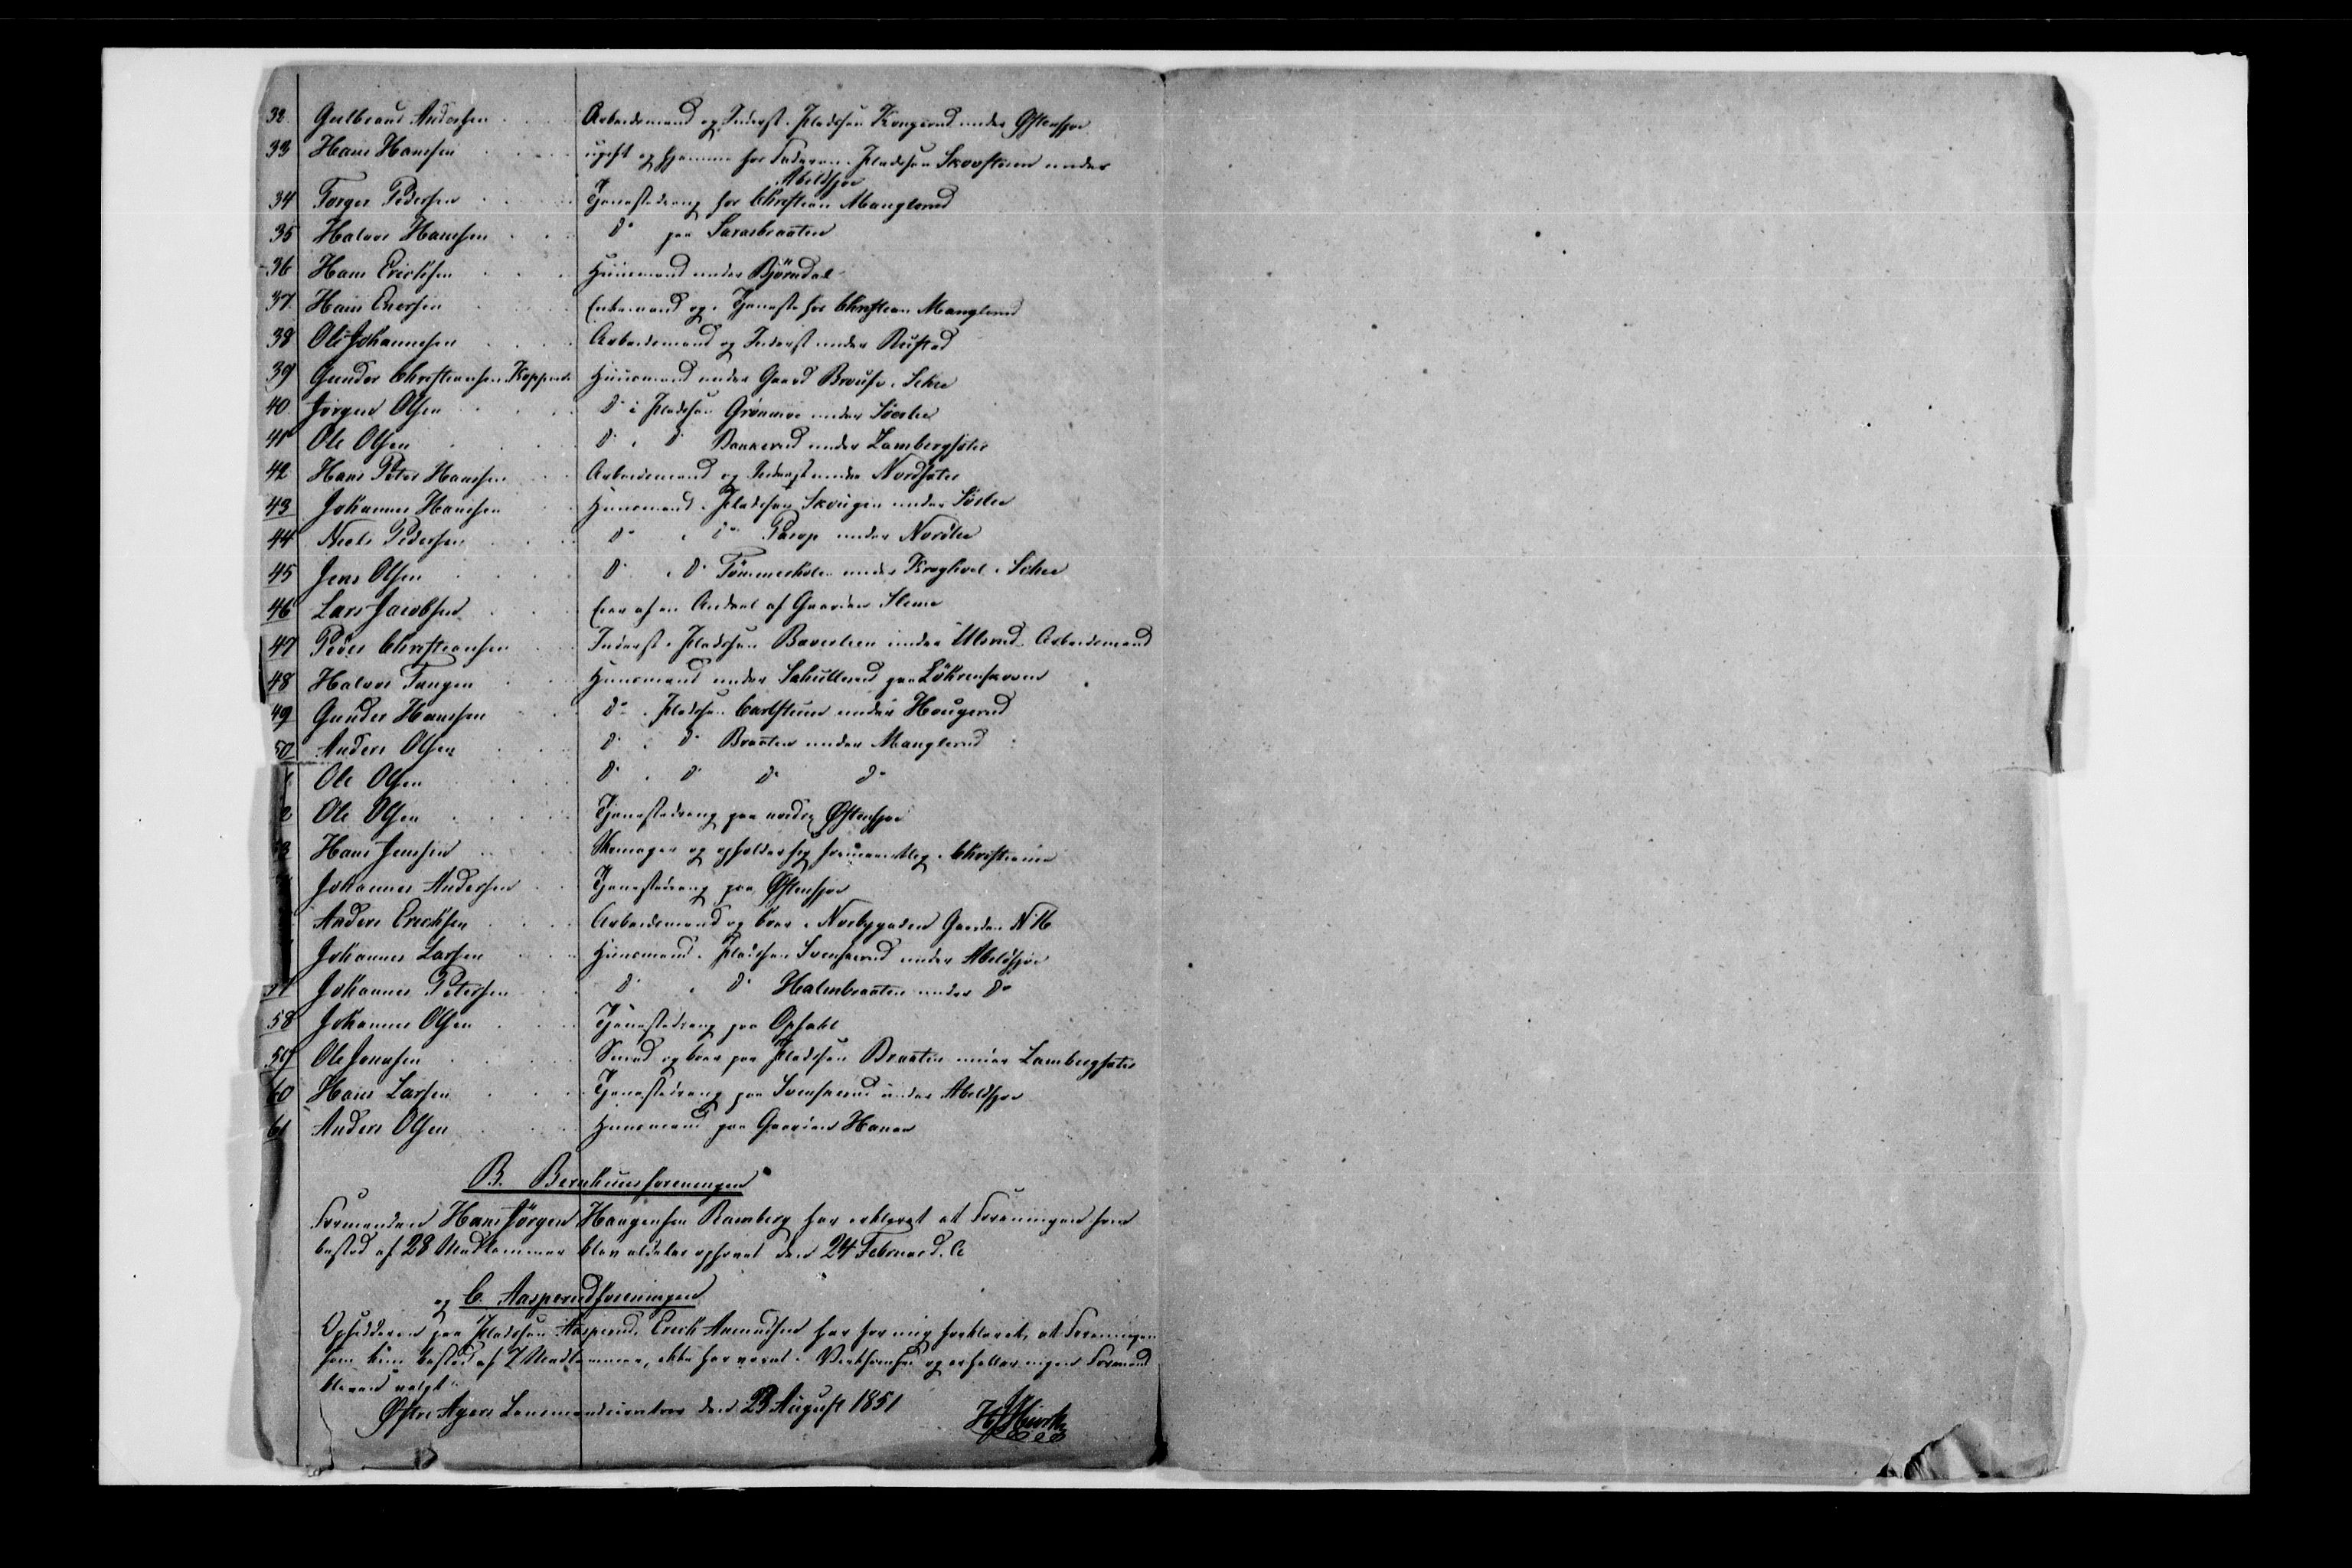 32 Gulbrand Andersen Arbeidsmand og Inderst i Pladsen Kongerud under Østensjøe
33 Hans Hansen ugift og hjemme hos Faderen i Pladsen Skovstuen under
Abildsøe
34 Torger Pedersen Tjenestedreng hos Christian Manglerud
35 Halvor Hansen Do paa Sarasbraaten
36 Hans Ericksen Huusmand under Bjørndal
37 Hans Eversen Enkemand og i Tjeneste hos Christian Manglerud
38 Ole Johannesen Arbeidsmand og Inderst under Rustad
39 Gunder Christiansen Huusmand under Gaard Brouse i Schee
40 Jørgen Olsen Do i Pladsen Grønmoe under Søelie
41 Ole Olsen Do i Do Bakkerud under Lambergsæter
42 Hans Peter Hansen Arbeidsmand og Inderst under Nordsæter
43 Johannes Hansen Huusmand i Pladsen Skougen under Sölie
44 Niels Pedersen Do i Do under Nordlie
45 Jens Olsen Do i Do Tömmerholm under Kroghvel i Schee
46 Lars Jacobsen Eier af en Andeel af Gaarden Steens
47 Peder Christiansen Inderst i Pladsen Baverlien under Ulsrud Arbeidsmand
48 Halvor Tangen Huusmand under Schullerud paa Lökenskoven
49 Gunder Hansen Do i Pladsen Carlstuen under Hougerud
50 Anders Olsen Do i Do Braaten under Manglerud
1 Ole Olsen Do i Do Do Do
2 Ole Olsen Tjenestedreng paa nordre Østensjøe
3 Hans Jensen Skomager og opholder sig i Christiania
Johannes Andersen Tjenestedreng paa Østensjøe
Anders Ericksen Arbeidsmand og boer i Noebygaden Gaarden N 16
Johannes Larsen Huusmand i Pladsen Svenserud under Abildsøe
57 Johannes Petersen Do i Do Halmbraaten under Do
58 Johannes Olsen Tjenestedreng paa Opsahl
59 Ole Jonasen Smed og boer paa Pladsen Braaten under Lambergsæter
60 Hans Larsen Tjenestedreng paa Svenserud under Abildsøe
61 Anders Olsen Huusmand paa Gaarden Hauer
B. Bernhuusforeningen
Formanden Hans Jörgen Haugensen Ramberg har erklæret at Foreningen som
bestod af 28 Medlemmer blev aldeles ophævet den 24 Februar d. A
og C. Aasperudforeningen
Opsidderen paa Pladsen Aasperud, Erick Amundsen har for mig forklaret, at Foreningen
som kun bestod af 7 Medlemmer, ikke har været i Virksomhed og er heller ingen Formand
bleven valgt
Østre Agers Lensmandscontor den 23 August 1851